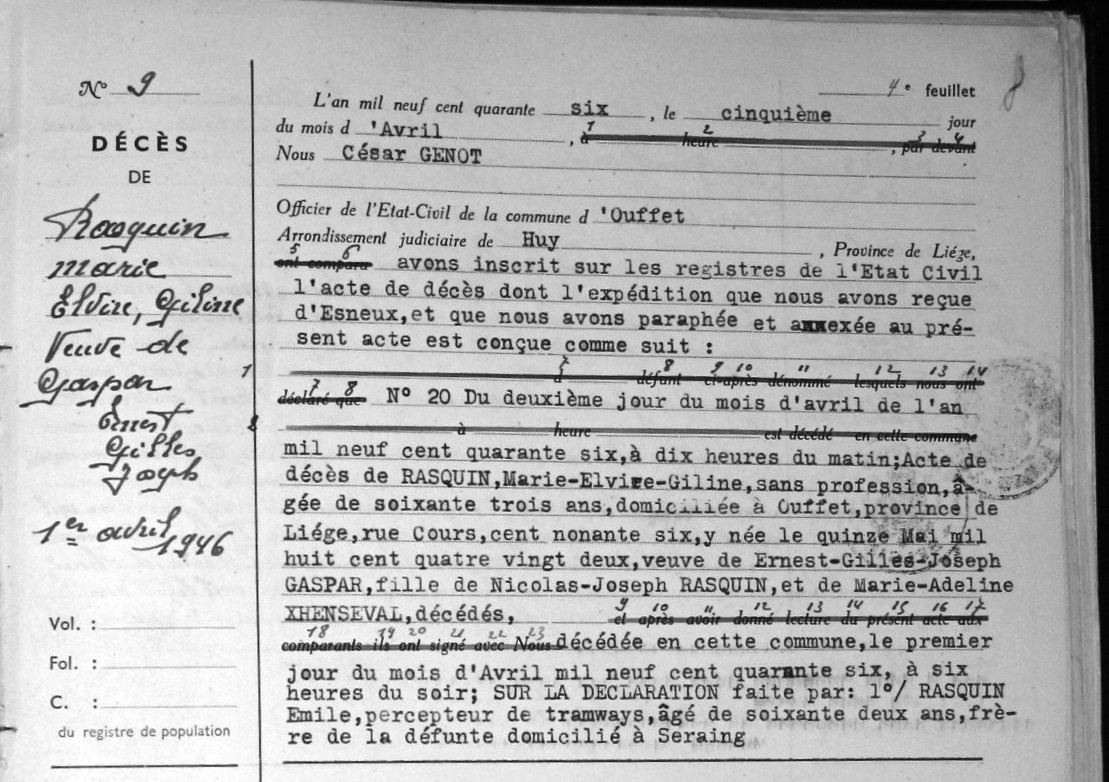 N° 9
DÉCÈS
DE
Rasquin
Marie
Elvire, Giline
Veuve de
Gaspar
Ernest
Gilles
Joseph
1er avril
1946
Vol. :
Fol. :
C. :
du registre de population
4e feuillet
8
L'an mil neuf cent quarante six , le cinquième jour
1 2 3 4
du mois d 'Avril , à heure , par devant
Nous César GENOT
Officier de l'Etat-Civil de la commune d 'Ouffet
Arrondissement judiciaire de Huy , Province de Liége,
5 6
ont comparu avons inscrit sur les registres de l'Etat Civil
l'acte de décès dont l'expédition que nous avons reçue
d'Esneux,et que nous avons paraphée et annexée au pré-
sent acte est conçue comme suit :
7 8 9 10 11 12 13 14
défunt ci-après dénommé lesquels nous ont
7 8
déclaré que N° 20 Du deuxième jour du mois d'avril de l'an
à heure est décédé en cette commune
mil neuf cent quarante six,à dix heures du matin;Acte de
décès de RASQUIN,Marie-Elvire-Giline,sans profession,â-
gée de soixante trois ans,domiciliée à Ouffet,province de
Liége,rue Cours,cent nonante six,y née le quinze Mai mil
huit cent quatre vingt deux,veuve de Ernest-Gilles-Joseph
GASPAR,fille de Nicolas-Joseph RASQUIN,et de Marie-Adeline
9 10 11 12 13 14 15 16 17
XHENSEVAL,décédés, et après avoir donné lecture du présent acte aux
18 19 20 21 22 23
comparants ils ont signé avec Nous décédée en cette commune,le premier
jour du mois d'Avril mil neuf cent quarante six, à six
heures du soir; SUR LA DECLARATION faite par: 1°/ RASQUIN
Emile,percepteur de tramways,âgé de soixante deux ans,frè-
re de la défunte domicilié à Seraing